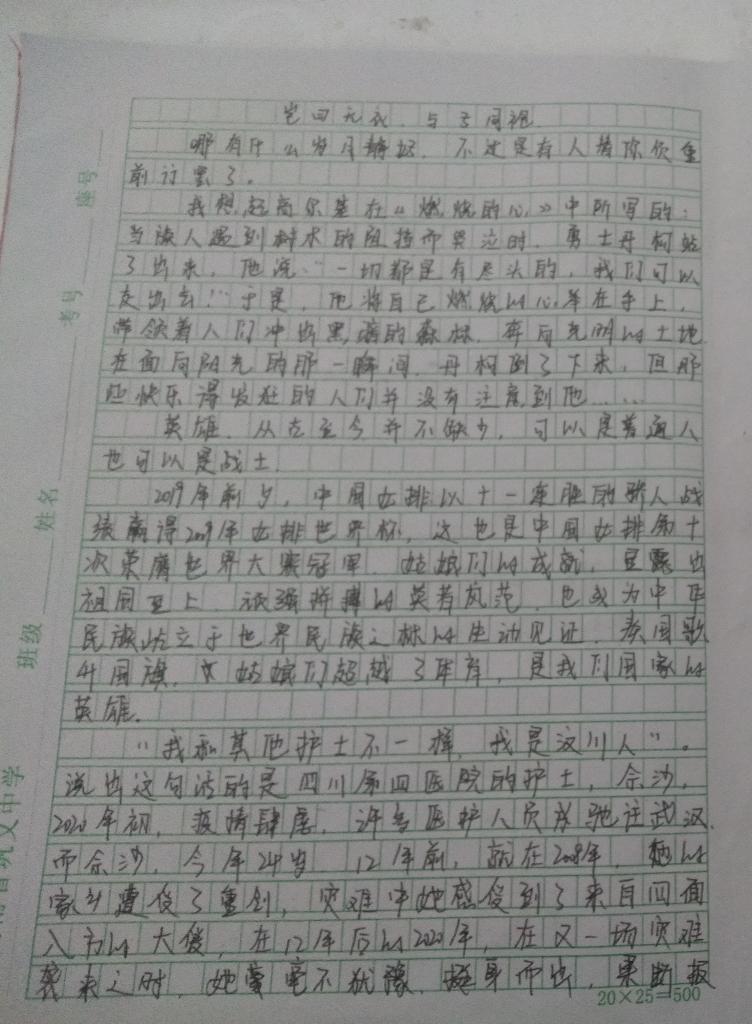 岂曰无衣,与子同袍
哪有什么岁月静好,不过是有人替你负重
前行罢了。
我想起高尔基在《燃烧的心》中所写的:
当族人遇到树木的阻挡而哭泣时,勇士丹柯站
了出来,他说:“一切都是有尽头的,我们可以
走出去!”于是,他将自己燃烧的心举在手上,
带领着人们冲出黑暗的森林,奔向光明的土地
在面向阳光的那一瞬间,丹柯倒了下来,但那
些快乐得发狂的人们并没有注意到他……
英雄,从古至今并不缺少,可以是普通人
也可以是战士
2019年前夕,中国女排以十一连胜的骄人战
绩赢得2019年女排世界杯,这也是中国女排第十
次荣膺世界大赛冠军,姑娘们的成就,显露出
祖国至上,顽强拼搏的英者风范,也成为中华
民族屹立于世界民族之林的生动见证,奏国歌
升国旗,姑娘们超越了体育,是我们国家的
英雄.
“我和其他护士不一样,我是汶川人”。
说出这句话的是四川第四医院的护士,佘沙,
2020年初,疫情肆虐,许多医护人员奔驰往武汉,
而佘沙,今年24岁 12年前,就在2008年,她的
家乡遭受了重创,灾难中她感受到了来自四面
八方的大爱,在12年后的2020年,在又一场灾难
袭来之时,她毫不犹豫,挺身而出,果断报
20×25=500
座号
考号
姓名
班级
巩义中学